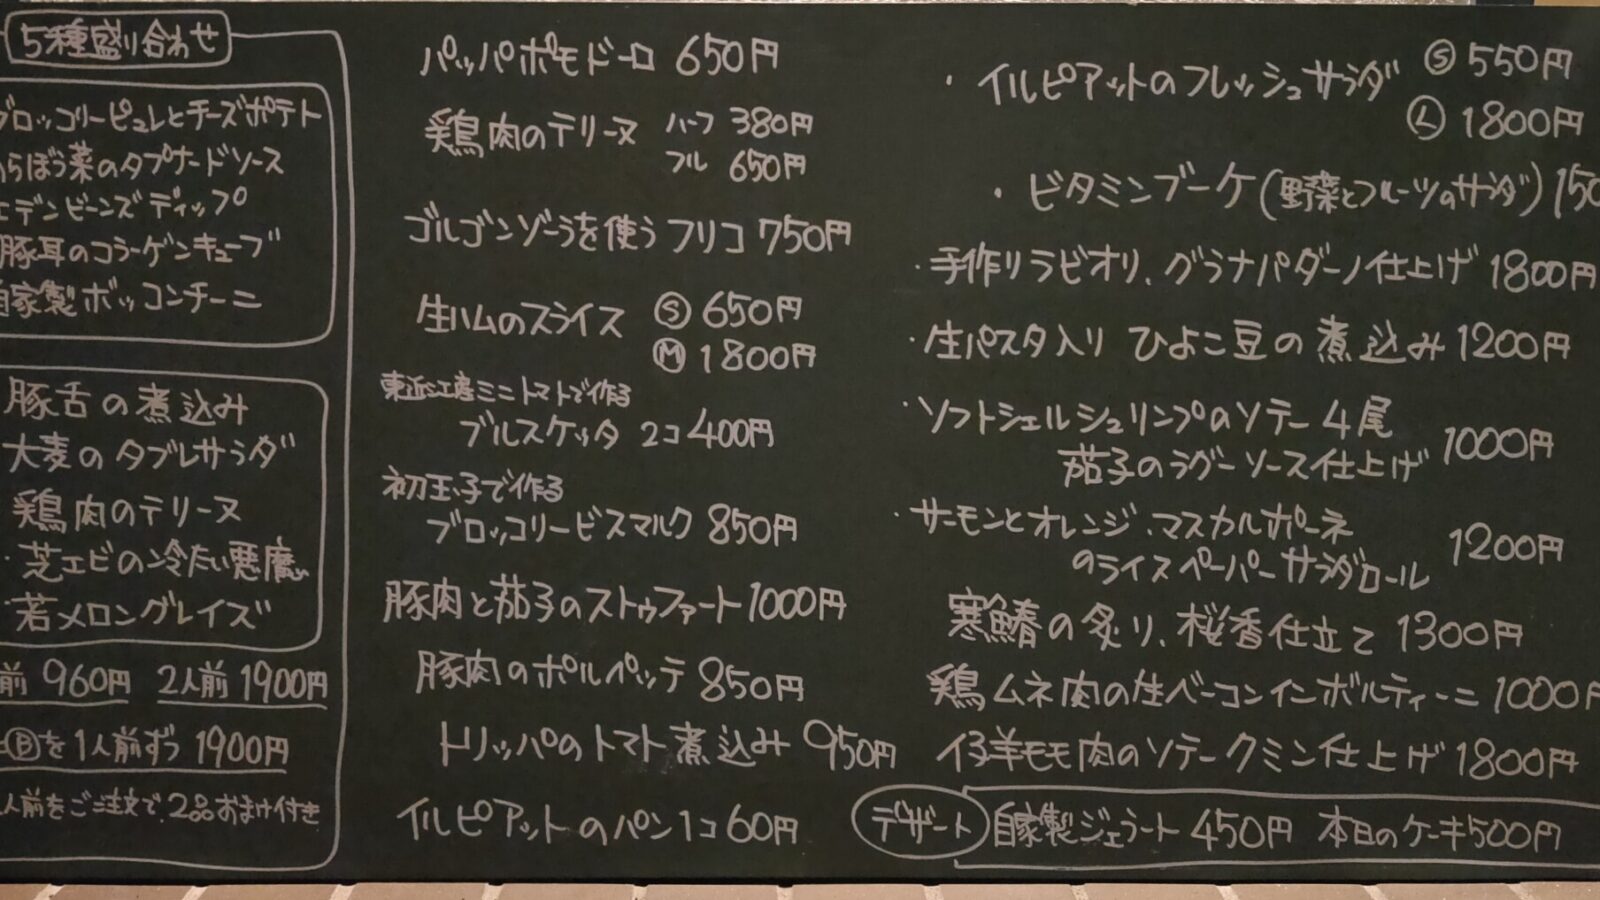 5種盛り合わせ
ブロッコリーピュレとチーズポテト
らぼう菜のタプナードソース
エデンビーンズディップ
豚耳のコラーゲンキューブ
自家製ボッコンチーニ
豚舌の煮込み
大麦のタブレサラダ
鶏肉のテリーヌ
・芝エビの冷たい悪魔
・若メロングレイズ
前 960円 2人前 1900円
Ⓑを1人前ずつ 1900円
人前をご注文で、2品おまけ付き
パッパポモドーロ 650円
鶏肉のテリーヌ ハーフ 380円
フル 650円
ゴルゴンゾーラを使う フリコ 750円
生ハムのスライス Ⓢ 650円
Ⓜ 1800円
東近江産ミニトマトで作る
ブルスケッタ 2コ 400円
初玉子で作る
ブロッコリービスマルク 850円
豚肉と茄子のストゥファート 1000円
豚肉のポルペッテ 850円
トリッパのトマト煮込み 950円
イルピアットのパン 1コ 60円
・イルピアットのフレッシュサラダ Ⓢ 550円
Ⓛ 1800円
・ビタミンブーケ(野菜とフルーツのサラダ) 150
・手作りラビオリ、グラナパダーノ仕上げ 1800円
・生パスタ入り ひよこ豆の煮込み 1200円
・ソフトシェルシュリンプのソテー 4尾
茄子のラグーソース仕上げ 1000円
・サーモンとオレンジ、マスカルポーネ
のライスペーパーサラダロール 1200円
寒鰆の炙り、桜香仕立て 1300円
鶏ムネ肉の生ベーコンインボルティーニ 1000円
仔羊モモ肉のソテークミン仕上げ 1800円
デザート 自家製ジェラート 450円 本日のケーキ 500円